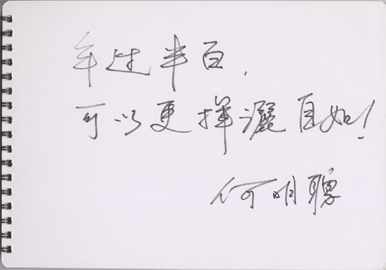 年过半百，
可以更挥灑自如！
何明聰